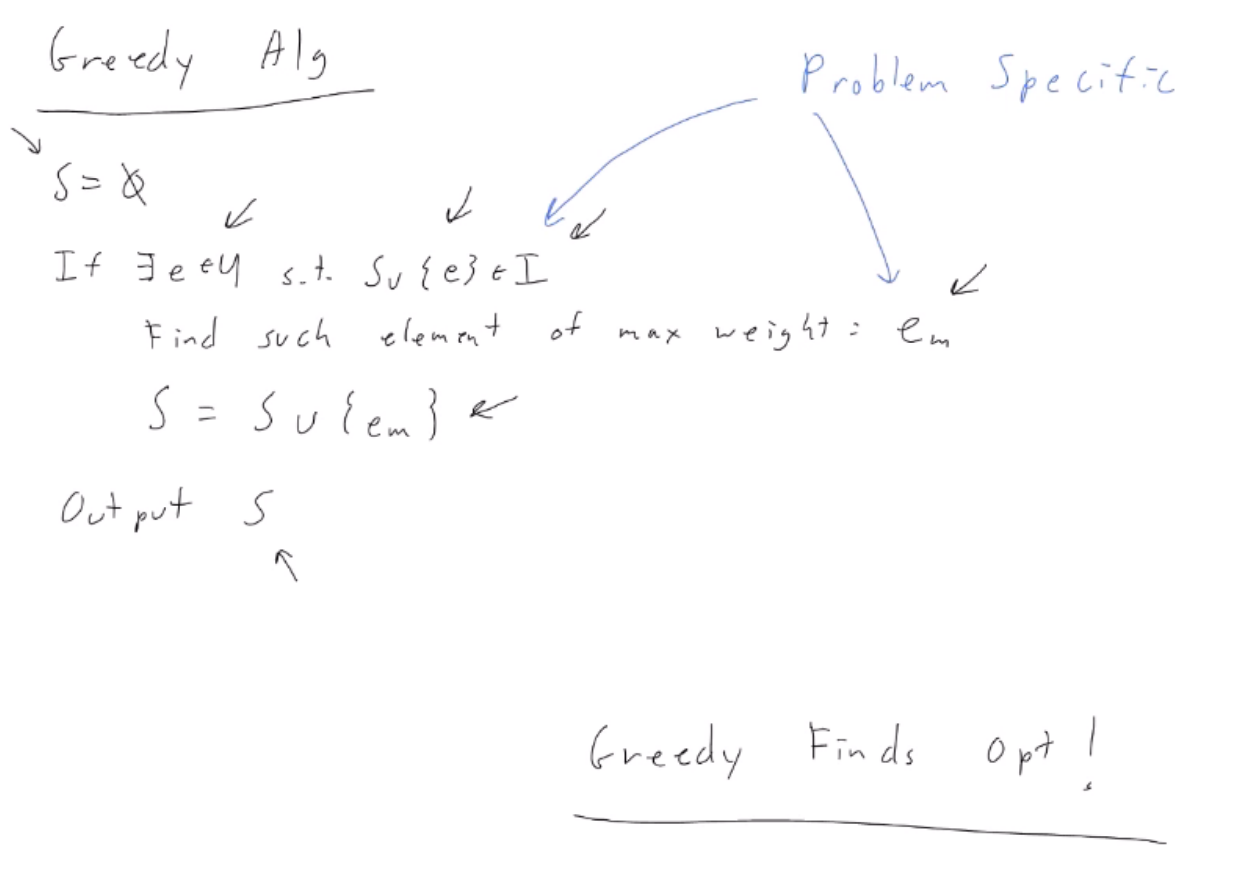 Greedy Alg
Problem Specific
S = ∅
If ∃ e ∈ U s.t. S ∪ {e} ∈ I
Find such element of max weight: e_m
S = S ∪ {e_m}
Output S
Greedy Finds Opt!